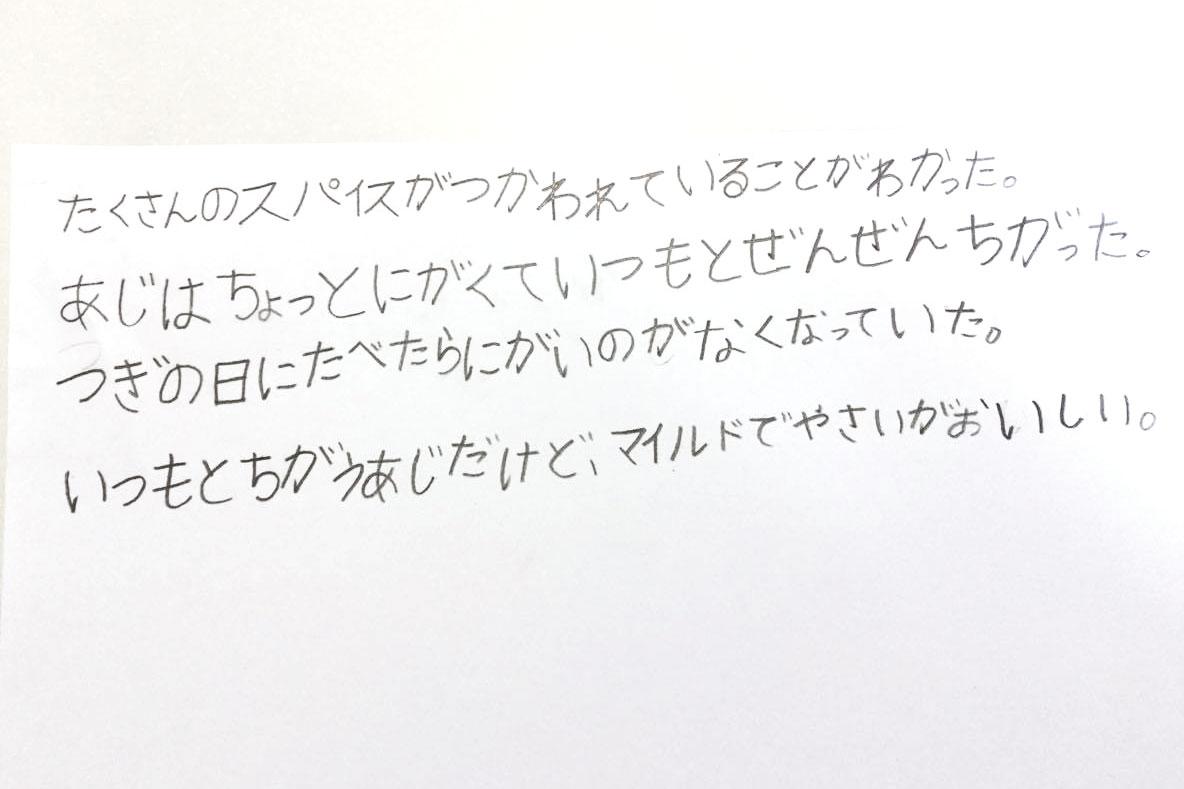 たくさんのスパイスがつかわれていることがわかった。
あじはちょっとにがくていつもとぜんぜんちがった。
つぎの日にたべたらにがいのがなくなっていた。
いつもとちがうあじだけど、マイルドでやさいがおいしい。